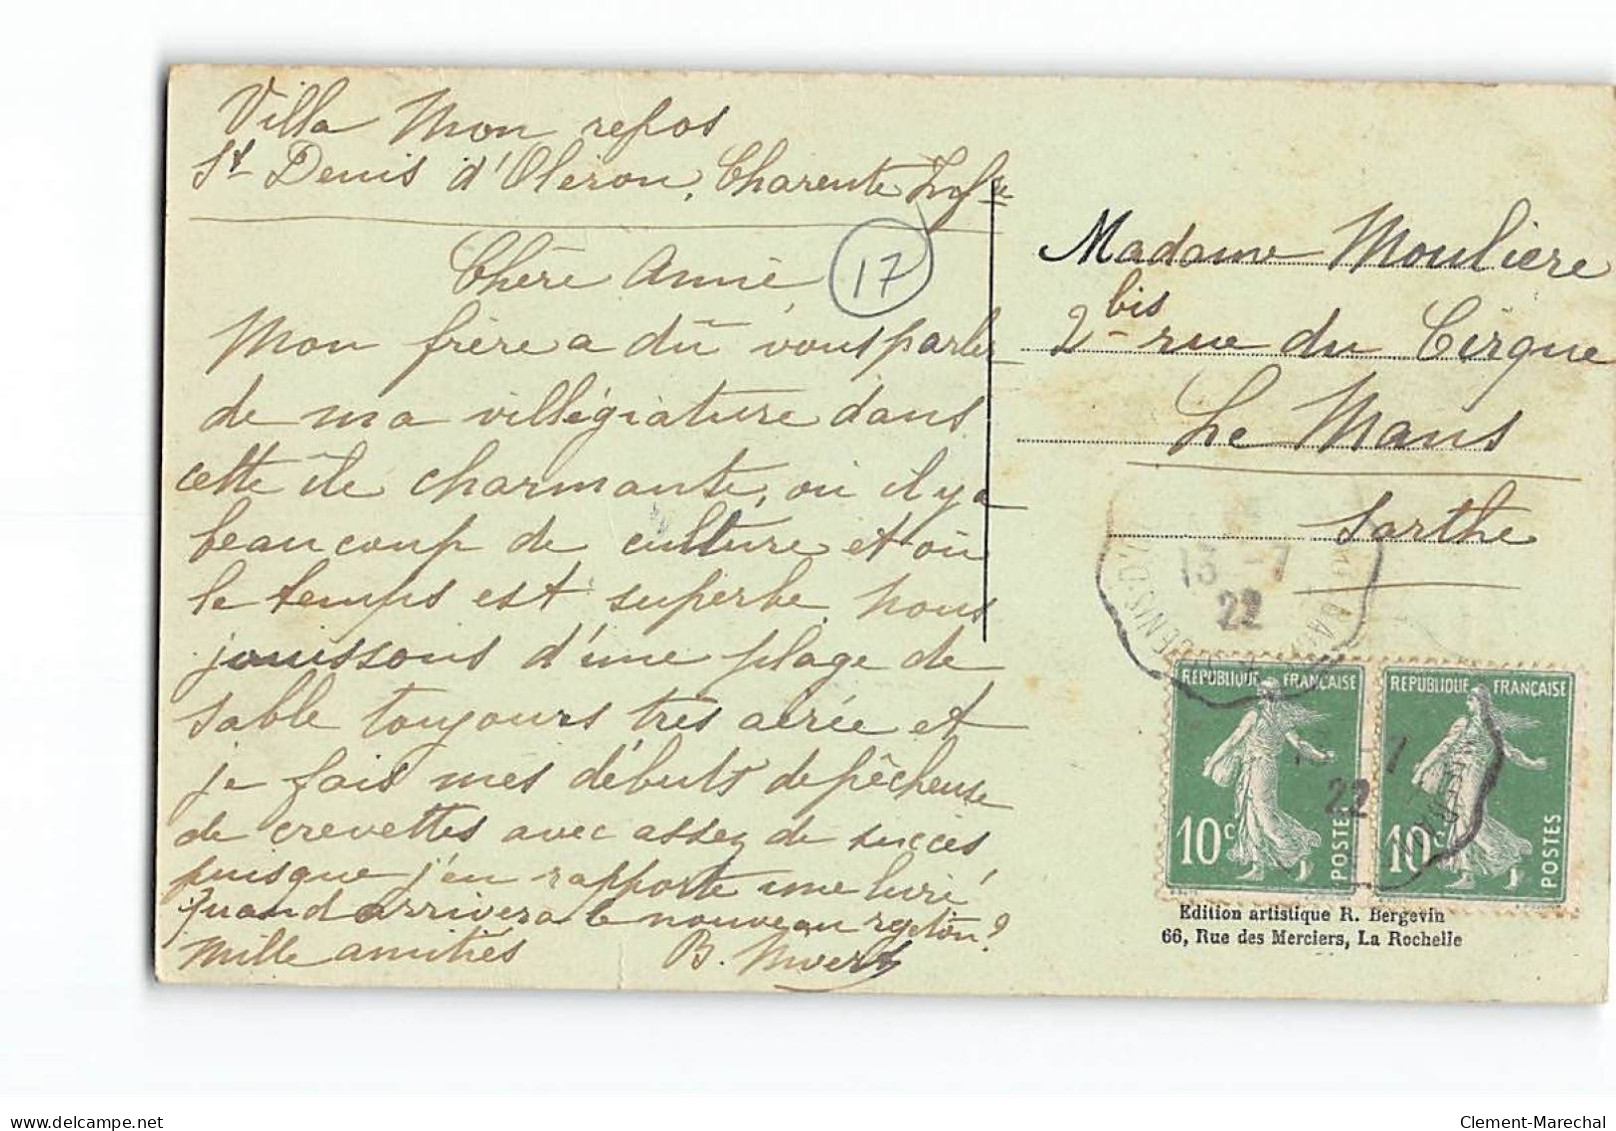 Villa Mon repos
St Denis d'Oléron, Charente Infre
17
Chère Amie,
Mon frère a dû vous parler
de ma villégiature dans
cette île charmante, où il y a
beaucoup de culture et où
le temps est superbe. Nous
jouissons d'une plage de
sable toujours très aérée et
je fais mes débuts de pêcheuse
de crevettes avec assez de succès
puisque j'en rapporte une livre,
Quand arrivera le nouveau rejeton?
Mille amitiés B.
Madame Moulière
2 bis rue du Cirque
Le Mans
Sarthe
13 -7
22
REPUBLIQUE FRANÇAISE
10c POSTES
REPUBLIQUE FRANÇAISE
10c POSTES
-7
22
Edition artistique R. Bergevin
66, Rue des Merciers, La Rochelle
delcampe.net
Clement-Marechal